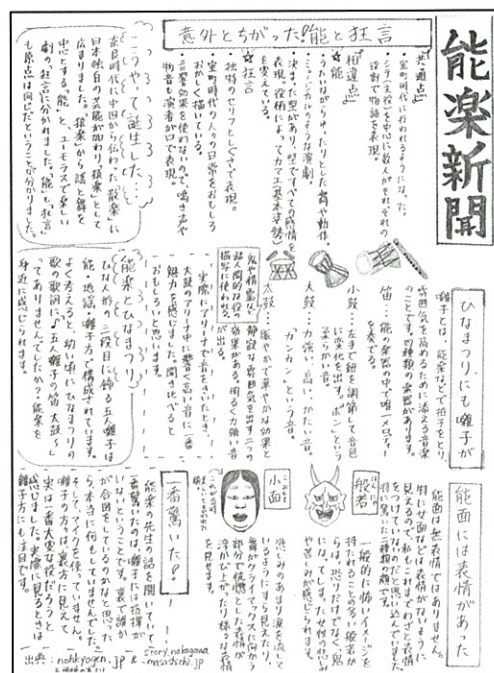 能楽新聞
意外とちがった!能と狂言
共通点
・室町時代に行われるようになった。
・シテ(主役)を中心に数人がそれぞれの
役割で物語を表現。
相違点
☆能
・うたいながらゆったりとした舞や動作。
・ミュージカルのような演劇。
・決まった型があり、型ですべての感情を
表現。役柄によってカマエ(基本姿勢)
を変えている。
☆狂言
・独特のセリフとしぐさで表現。
・室町時代の人々の日常をおもしろ
おかしく描いている。
・音響効果を使わないので、鳴き声や
物音も演者が口で表現。
こうやって誕生した…
奈良時代に中国から伝わった「散楽」に
日本独自の芸能が加わり、「猿楽」として
広まりました。「猿楽」から謡と舞を
中心とする「能」と、ユーモラスで楽しい
劇の「狂言」に分かれました。「能」も「狂言」
も原点は同じだということが分かりました。
ひなまつりにも囃子が
囃子とは、能楽などで拍子をとり、
雰囲気を高めるために添える音楽
のことです。四種類の楽器があります。
笛…能の楽器の中で唯一メロディー
を奏でる。
小鼓…左手で紐を調節して音色
に変化を出す。「ポン」という
柔らかい音。
大鼓…力強い、高い、かたい音。
「カンカン」という音。
太鼓…賑やかで華やかな効果と
静寂な雰囲気を出す二つの
効果がある。明るく力強い音
が出る。
鬼や精霊など
超人間的な役の
描写に使われる
実際にアリーナで音をきいたとき、
大鼓のアリーナ中に響く高い音に一番
魅力を感じました。聞き比べると
おもしろいと思います。
能楽とひなまつり
ひな人形の三段目に飾る五人囃子は
能・地謡・囃子方で構成されています。
よく考えると、幼い頃にひなまつりの
歌の歌詞に、♪五人囃子の笛太鼓〜♪
ってありませんでしたか?能楽を
身近に感じられます。
能面には表情があった
能面は無表情ではありません。
特に女面などは表情がないように
見えるので、私もこれまでわざと表情
をつけていないんだと思い込んでいました。
特に驚いた二種類の顔です。
般若
はんにゃ
一般的に怖いイメージを
持たれることの多い般若か
らは、恐いだけでなく、鬼
になってしまった女性の悲しみ
や苦しみが感じられます。
小面
こおもて
悲しみのあまり涙を流して
いるように見えたり、
舞がクライマックスに向かう
部分で恍惚とした表情が
浮かび上がったり様々な表情
を見せます。
一番驚いた!
能楽の先生の話を聞いていて、
一番驚いたのは、囃子には指揮が
いないということです。裏で誰か
が合図をしているのかなと思った
ら、本当に何もしていませんでした。
そして、マイクを使っていません。
囃子の方々は、裏方に見えて
実は一番大変な役だろうと
感じました。実際に見るときは
囃子方にも注目です。
出典:nohkyogen.jp & story.nakagawa-masashichi.jp